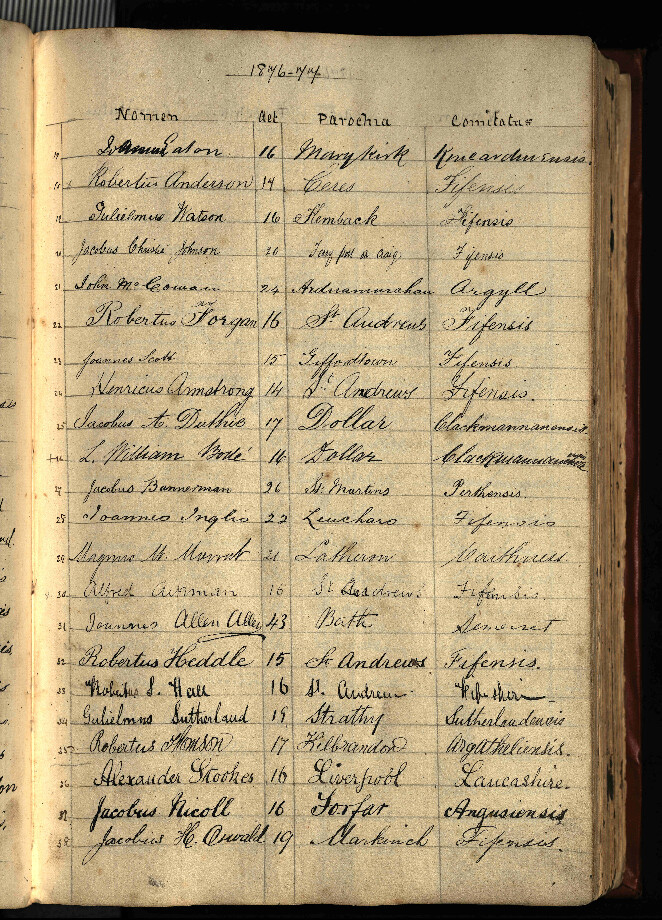 1876-77
Nomen Aet Parochia Comitatus
Eaton 16 Marykirk Kincardinensis.
Robertus Anderson 14 Ceres Fifensis
Gulielmus Watson 16 Kemback Fifensis
20 Jacobus Christie Johnson 20 Craig Fifensis
21 John McCowan 24 Ardnamurchan Argyll
22 Robertus Forgan 16 St Andrews Fifensis
23 Joannes Scott 15 Giffordtown Fifensis
24 Henricus Armstrong 14 St Andrews Fifensis.
25 Jacobus A. Duthie 17 Dollar Clackmannanensis.
L. William Bodé 16 Dollar
27 Jacobus Bannerman 26 St Martins Perthensis.
28 Ioannes Inglis 22 Leuchars Fifensis
29 Magnus 21 Latheron Caithness.
30 Alfred 16 St Andrews Fifensis.
31 Ioannes Allen Allen 43 Bath Somerset
32 Robertus Heddle 15 St Andrews Fifensis.
33 Robertus S. 16 St. Andrews Fifeshire
34 Gulielmus Sutherland 19 Strathy Sutherlandensis
35 Robertus 17 Kilbrandon Argatheliensis.
36 Alexander Stookes 16 Liverpool Lancashire.
37 Jacobus Nicoll 16 Forfar Angusiensis
38 Jacobus H. Oswald 19 Markinch Fifensis.